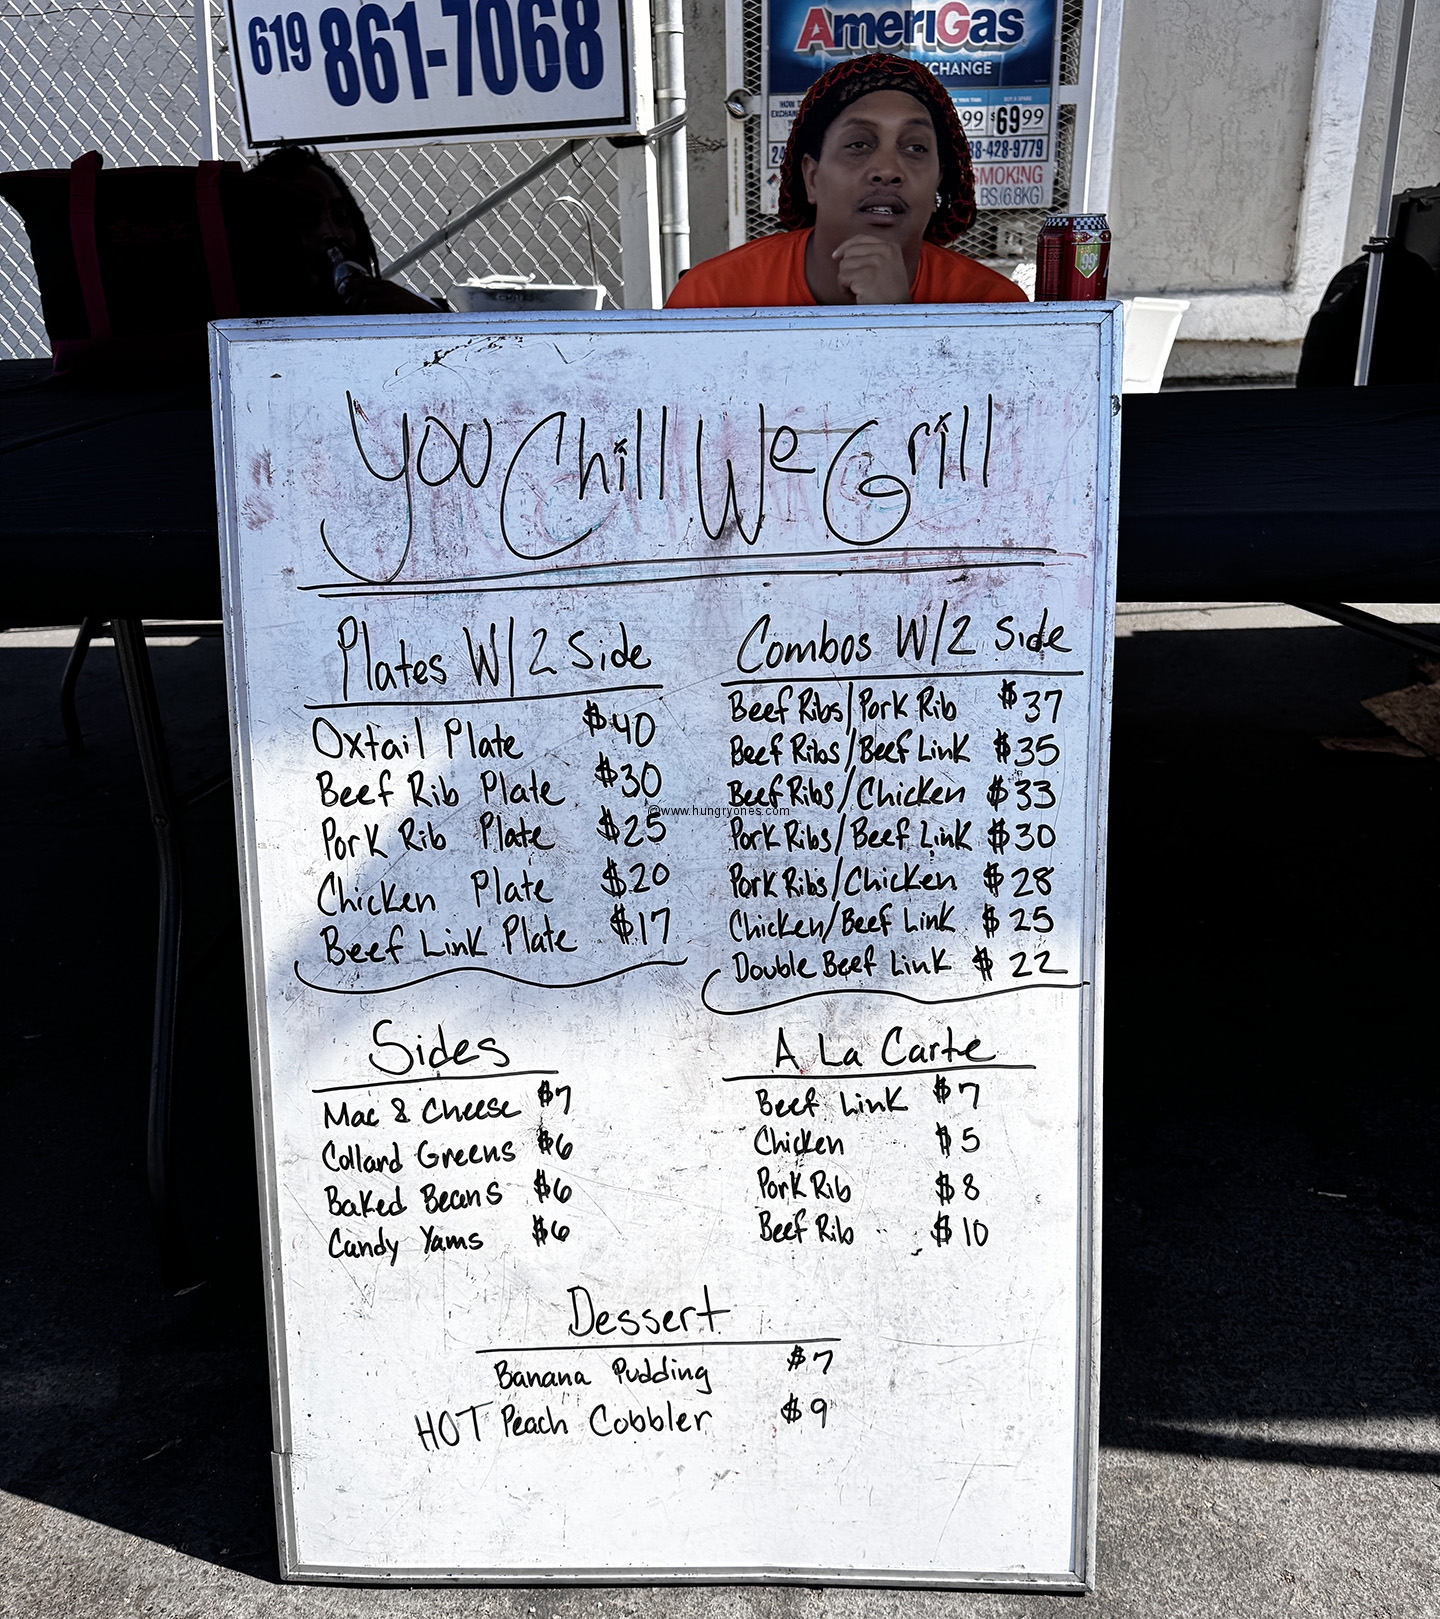 619 861-7068
AmeriGas
CHANGE
99 $69 99
8-428-9779
SMOKING
LBS.(6.8KG)
99¢
You Chill We Grill
Plates W/2 Side
Oxtail Plate $40
Beef Rib Plate $30
Pork Rib Plate $25
Chicken Plate $20
Beef Link Plate $17
Combos W/2 Side
Beef Ribs/Pork Rib $37
Beef Ribs/Beef Link $35
Beef Ribs/Chicken $33
©www.hungryones.com
Pork Ribs/Beef Link $30
Pork Ribs/Chicken $28
Chicken/Beef Link $25
Double Beef Link $22
Sides
Mac & Cheese $7
Collard Greens $6
Baked Beans $6
Candy Yams $6
A La Carte
Beef Link $7
Chicken $5
Pork Rib $8
Beef Rib $10
Dessert
Banana Pudding $7
HOT Peach Cobbler $9